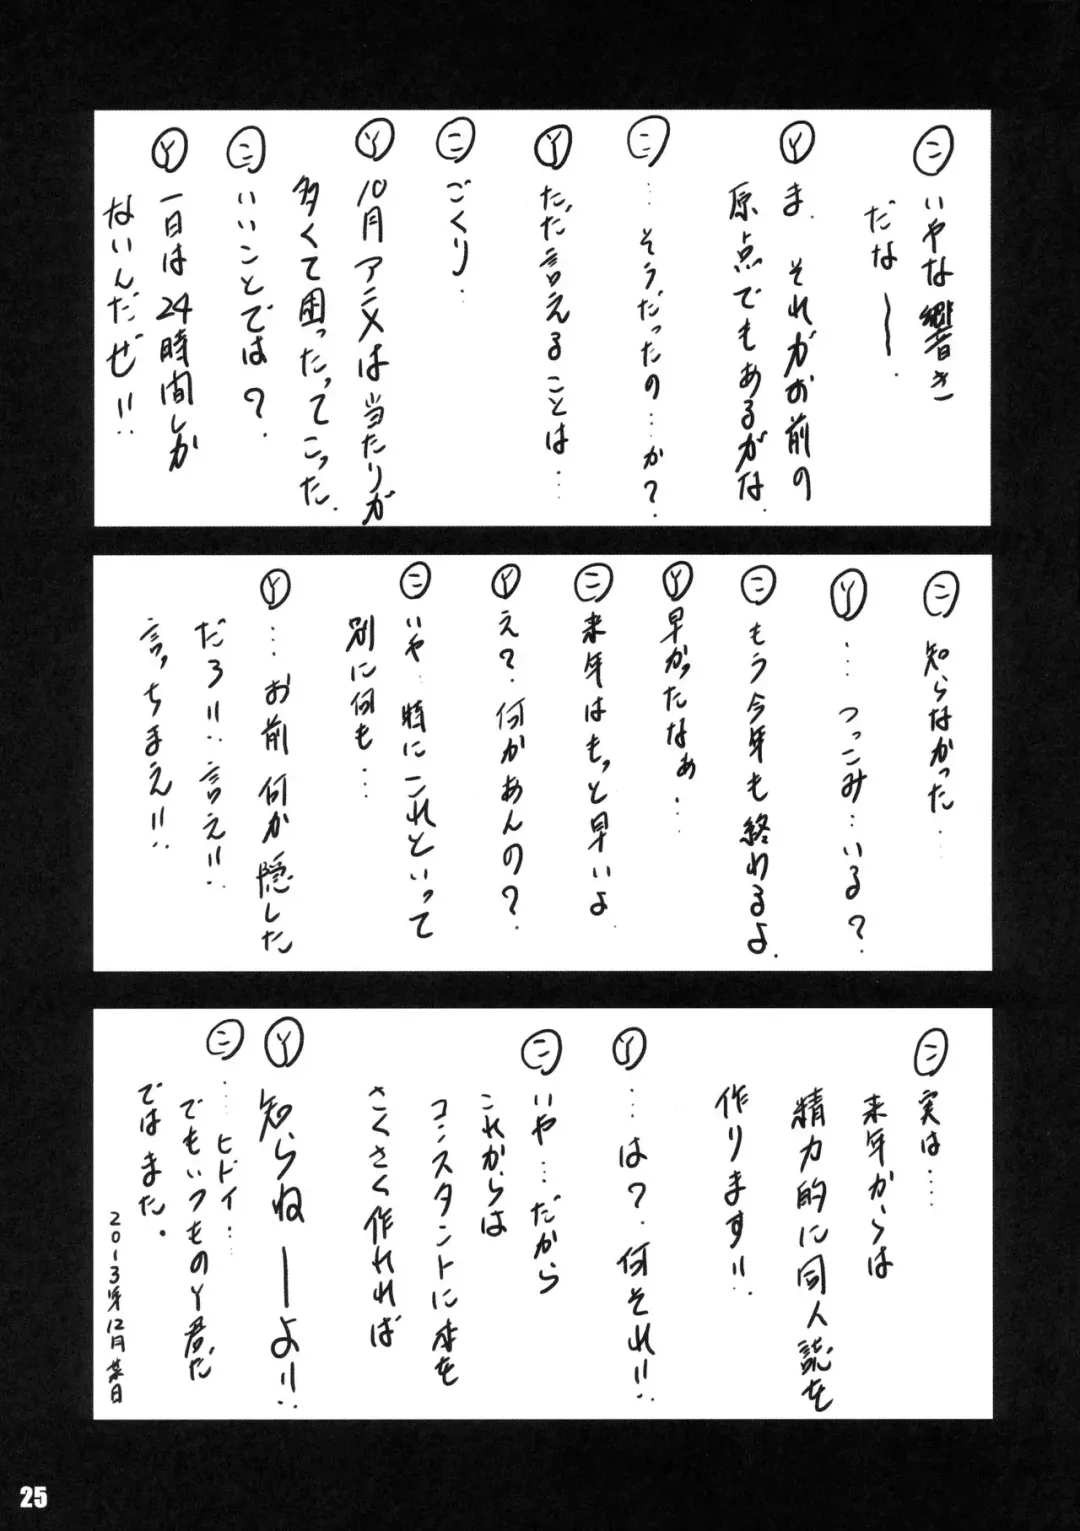 ㊁
いやな響き
だなー.
Ⓨ
ま. それがお前の
原点でもあるがな.
㊁
…そうだったの…か?
Ⓨ
ただ言えることは…
㊁
ごくり…
Ⓨ
10月アニメは当たりが
多くて困ったってこった.
㊁
いいことでは?
Ⓨ
一日は24時間しか
ないんだぜ!!
㊁
知らなかった…
Ⓨ
…つっこみ…いる?
㊁
もう今年も終わるよ.
Ⓨ
早かったなぁ…
㊁
来年はもっと早いよ
Ⓨ
え?何かあんの?
㊁
いや…特にこれといって
別に何も…
Ⓨ
…お前何か隠した
だろ!!言え!!
言っちまえ!!
㊁
実は…
来年からは
精力的に同人誌を
作ります!!
Ⓨ
…は?何それ!!
㊁
いや…だから
これからは
コンスタントに本を
さくさく作れれば
Ⓨ
知らねーよ!!
㊁
…ヒドイ…
でもいつものY君だ
ではまた。
2013年12月某日
25